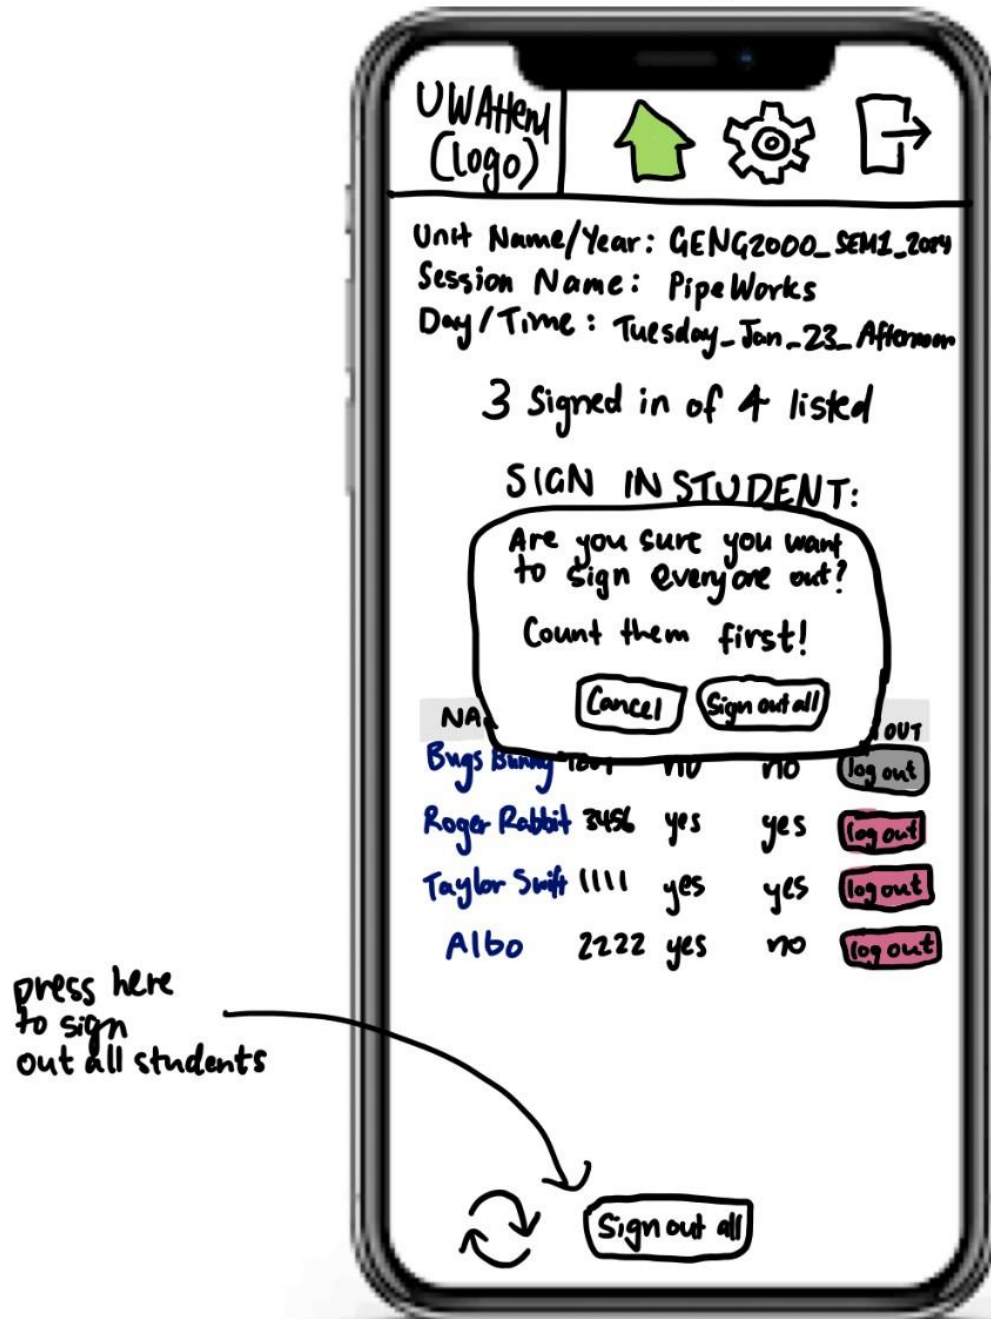 UWAttend
(logo)
Unit Name/Year: GENG2000_SEM1_2024
Session Name: PipeWorks
Day/Time: Tuesday_Jan_23_Afternoon
3 Signed in of 4 listed
SIGN IN STUDENT:
Are you sure you want
to sign everyone out?
Count them first!
Cancel Sign out all
NA OUT
Bugs Bunny no no log out
Roger Rabbit 3456 yes yes log out
Taylor Swift 1111 yes yes log out
Albo 2222 yes no log out
press here
to sign
out all students
Sign out all